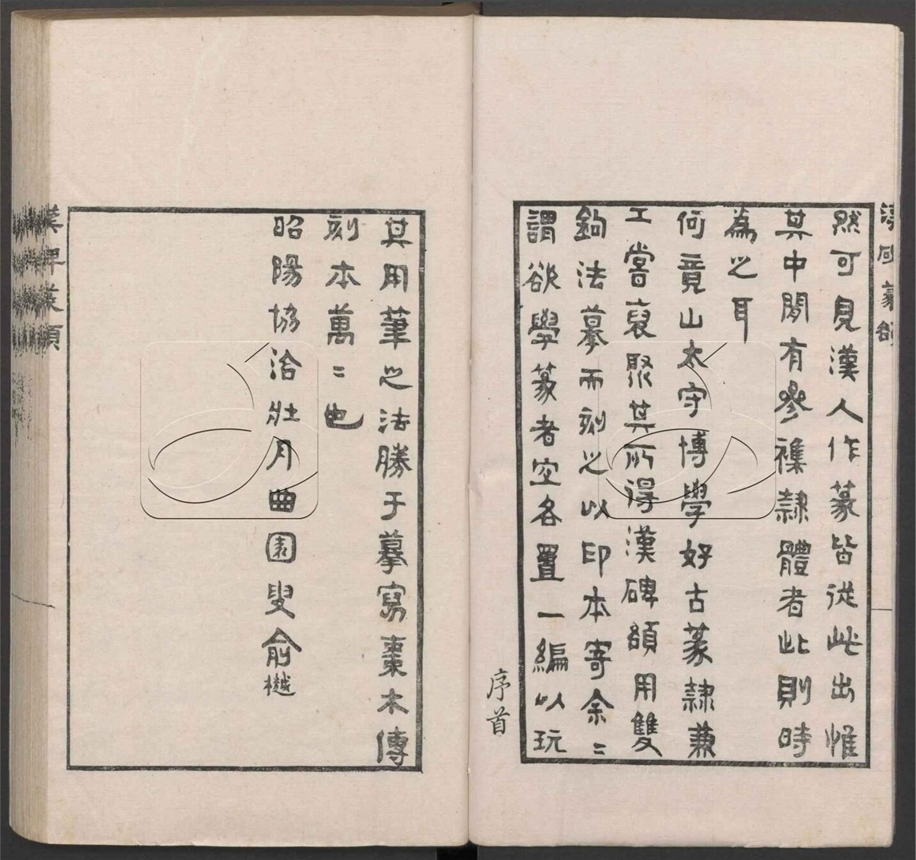 漢碑篆額
然可見漢人作篆皆從此出惟
其中間有參襍隸體者此則時
為之耳
何竟山太守博學好古篆隸兼
工嘗裒聚其所得漢碑額用雙
鉤法摹而刻之以印本寄余〻
謂欲學篆者宜各置一編以玩
序首
其用筆之法勝于摹寫棗木傳
刻本萬〻也
昭陽協洽壯月曲園叟俞樾
漢碑篆額